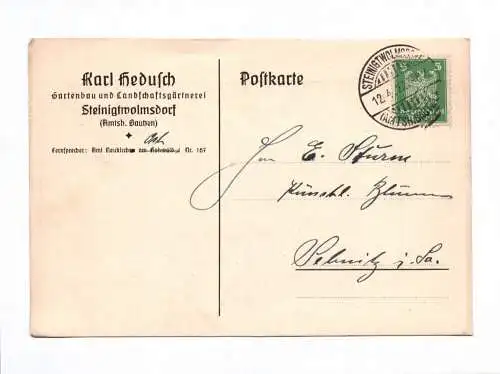 Karl Hedusch
Gartenbau und Landschaftsgärtnerei
Steinigtwolmsdorf
(Amtsh. Bautzen)
Fernsprecher: Amt Neukirch Nr. 167
Postkarte
STEINIGTWOLMSDORF
12.4.
(AMTSH.
5
Deutsches Reich
E. Sturm
Künstl. Blumen
Sebnitz i. Sa.